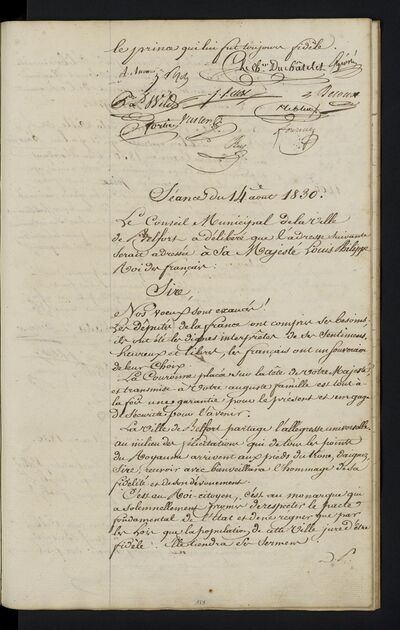 le prince qui lui fut toujours fidèle.
Duchâtelet
Séance du 14 août 1830.
Le Conseil Municipal de la Ville
de Belfort a délibéré que l'adresse suivante
serait adressée à Sa Majesté Louis Philippe
Roi des français:
Sire,
Nos vœux sont exaucés!
Les députés de la france ont compris ses besoins
ils ont été les dignes interprètes de ses sentimens.
heureux et libres, les français ont un souverain
de leur Choix.
La Couronne placée sur la tête de votre Majesté
et transmise à Votre auguste famille est tout à
la fois une garantie pour le présent et un gage
de Sécurité pour l'avenir.
La Ville de Belfort partage l'allégresse universelle
au milieu des félicitations qui de tous les points
du Royaume arrivent aux pieds du trône, daignez,
Sire, recevoir avec bienveillance l'hommage de sa
fidélité et de son dévouement.
C'est au Roi-citoyen, c'est au monarque qui
a solennellement promis de respecter le pacte
fondamental de l'Etat et de ne régner que par
les lois que la population de cette Ville jure d'être
fidèle. Elle tiendra son Serment.